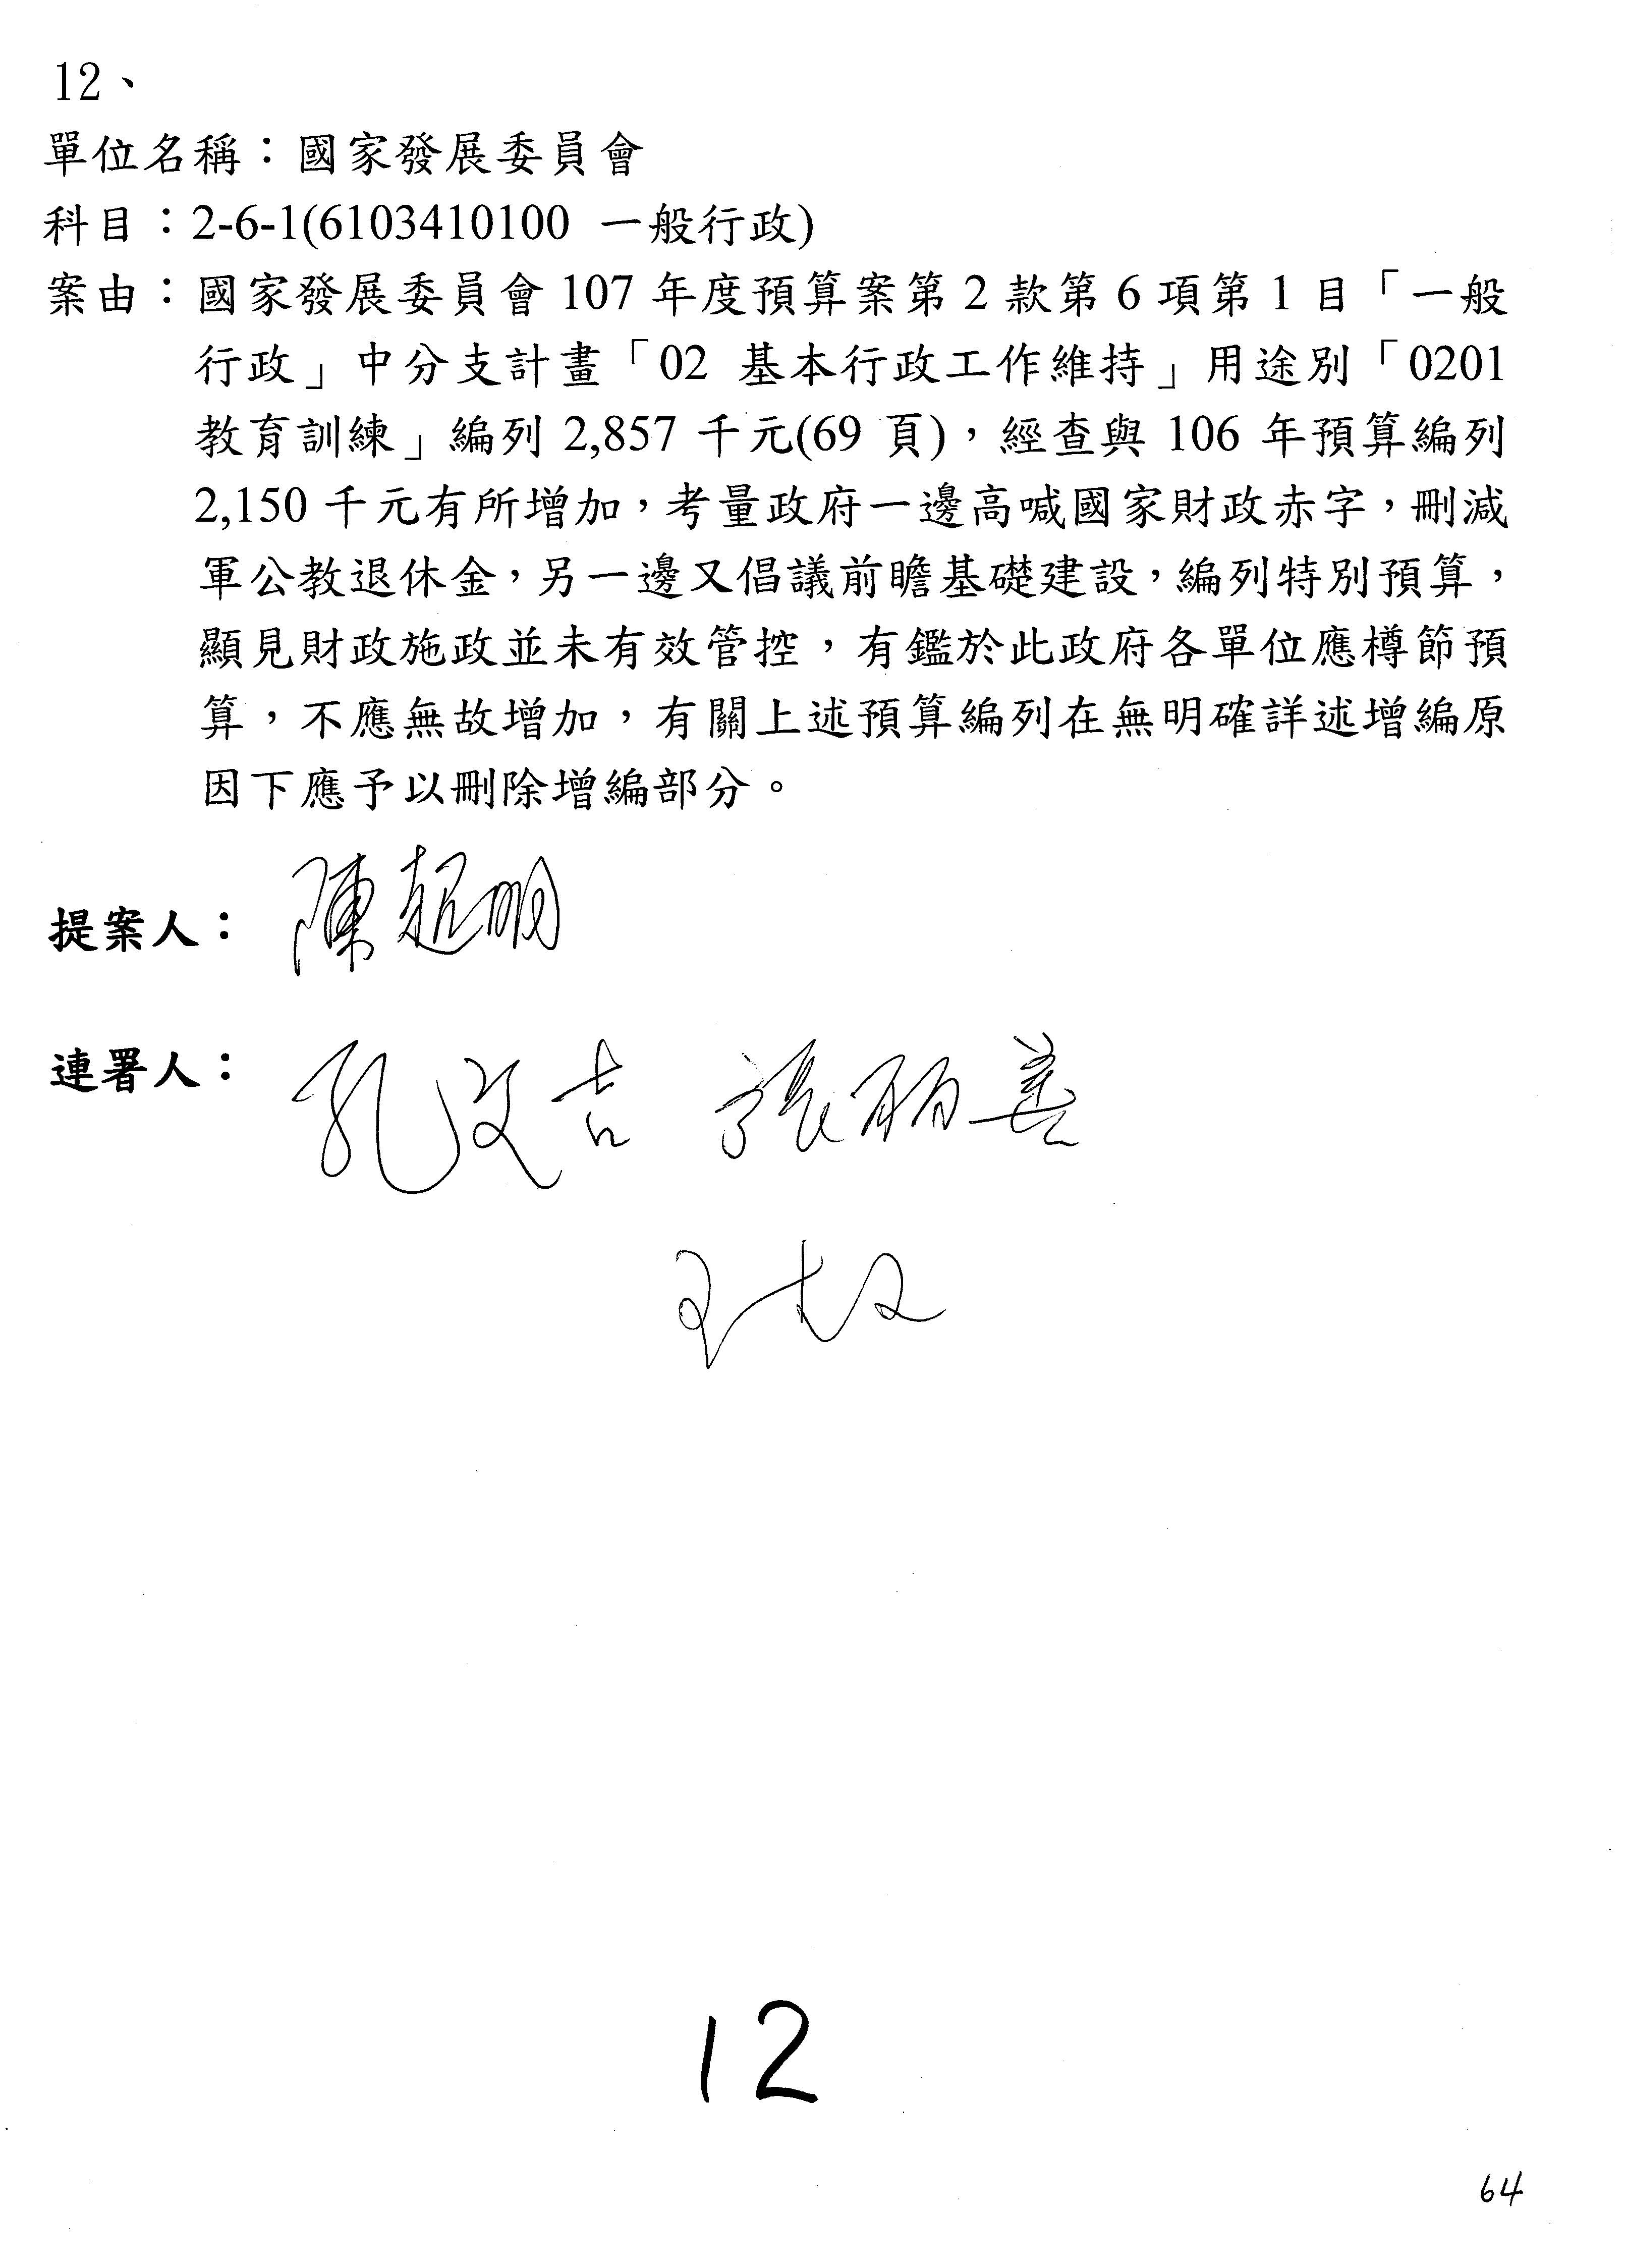 12、
單位名稱：國家發展委員會
科目：2-6-1(6103410100 一般行政)
案由：國家發展委員會 107 年度預算案第 2 款第 6 項第 1 目「一般
行政」中分支計畫「02 基本行政工作維持」用途別「0201
教育訓練」編列 2,857 千元(69 頁)，經查與 106 年預算編列
2,150 千元有所增加，考量政府一邊高喊國家財政赤字，刪減
軍公教退休金，另一邊又倡議前瞻基礎建設，編列特別預算，
顯見財政施政並未有效管控，有鑑於此政府各單位應樽節預
算，不應無故增加，有關上述預算編列在無明確詳述增編原
因下應予以刪除增編部分。
提案人：陳超明
連署人：孔文吉 張麗善
12
64